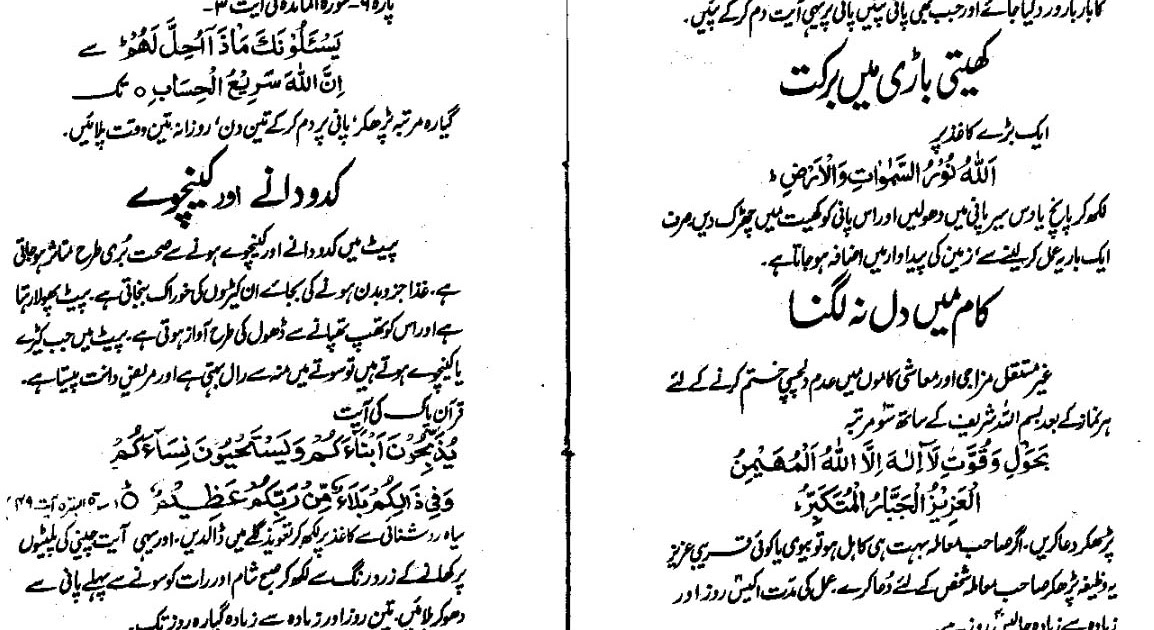 کا بار بار ورد کیا جائے اور جب بھی پانی پئیں پانی پر یہی آیت دم کر کے پئیں۔
کھیتی باڑی میں برکت
ایک بڑے کاغذ پر
اَللّٰهُ نُوْرُ السَّمٰوٰتِ وَالْاَرْضِ ؕ
لکھ کر پانچ یا دس سیر پانی میں دھولیں اور اس پانی کو کھیت میں چھڑک دیں صرف
ایک بار یہ عمل کر لینے سے، زمین کی پیداوار میں اضافہ ہو جاتا ہے۔
کام میں دل نہ لگنا
غیر مستقل مزاجی اور معاشی کاموں میں عدم دلچسپی ختم کرنے کے لئے
ہر نماز کے بعد بسم اللہ شریف کے ساتھ سو مرتبہ
بِحَوْلِ وَقُوَّتِ لَآ اِلٰهَ اِلَّا اللّٰهُ الْمُهَيْمِنُ
الْعَزِيْزُ الْجَبَّارُ الْمُتَكَبِّرُ
پڑھکر دعا کریں۔ اگر صاحب معاملہ بہت ہی کاہل ہو تو بیوی یا کوئی قریبی عزیز
یہ وظیفہ پڑھکر صاحب معاملہ شخص کے لئے دُعا کرے۔ عمل کی مدت اکیس روز اور
زیادہ سے زیادہ چالیس روز ہے۔
پارہ ۶۔ سورہ المائدہ کی آیت ۳۔
يَسْئَلُوْنَكَ مَاذَآ اُحِلَّ لَهُمْ ؕ سے
اِنَّ اللّٰهَ سَرِيْعُ الْحِسَابِ ۝ تک
گیارہ مرتبہ پڑھکر، پانی پر دم کر کے تین دن، روزانہ تین وقت پلائیں۔
کدو دانے اور کینچوے
پیٹ میں کدو دانے اور کینچوے ہونے سے صحت بُری طرح متاثر ہو جاتی
ہے۔ غذا جزو بدن ہونے کی بجائے ان کیڑوں کی خوراک بنجاتی ہے۔ پیٹ پھولا رہتا
ہے اور اس کو تھپ تھپانے سے ڈھول کی طرح آواز ہوتی ہے۔ پیٹ میں جب کیڑے
یا کینچوے ہوتے ہیں تو سوتے میں منہ سے رال بہتی ہے اور مریض دانت پیستا ہے۔
قرآن پاک کی آیت
يُذَبِّحُوْنَ اَبْنَآءَكُمْ وَيَسْتَحْيُوْنَ نِسَآءَكُمْ
وَفِيْ ذَالِكُمْ بَلَآءٌ مِّنْ رَبِّكُمْ عَظِيْمٌ ۝ البقرہ آیت ۴۹
سیاہ روشنائی سے کاغذ پر لکھ کر تعویذ گلے میں ڈالدیں۔ اور یہی آیت چینی کی پلیٹوں
پر کھانے کے زرد رنگ سے لکھ کر صبح شام اور رات کو سونے سے پہلے پانی سے
دھو کر پلائیں۔ تین روز اور زیادہ سے زیادہ گیارہ روز تک۔